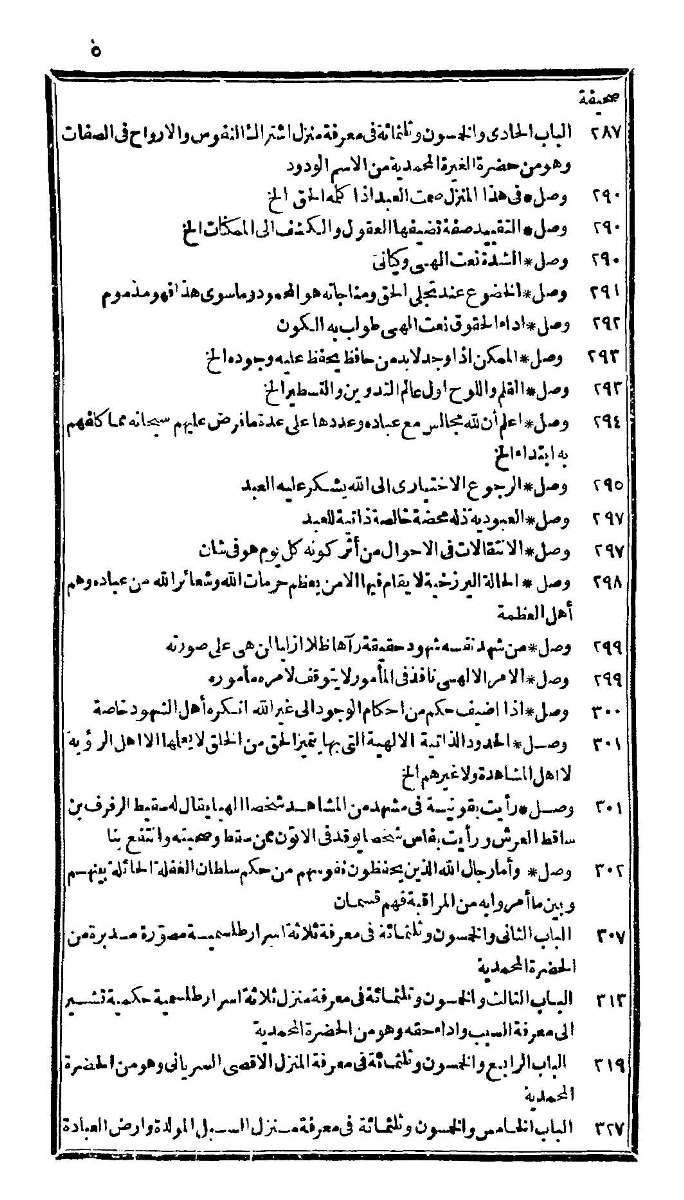 ٥
صحيفة
٢٨٧ الباب الحادى والخمسون وثلثمائة فى معرفة منزل اشتراك النفوس والارواح فى الصفات
وهو من حضرة الغيرة المحمدية من الاسم الودود
٢٩٠ وصل * فى هذا المنزل صمت العبد اذا كلمه الحق الخ
٢٩٠ وصل * التقييد صفة تضيفها العقول والكشف الى الممكنات الخ
٢٩٠ وصل * الشدة نعت الهى وكيانى
٢٩١ وصل * الخضوع عند تجلى الحق ومناجاته هو المحمود وما سوى هذا فهو مذموم
٢٩٢ وصل * اداء الحقوق نعت الهى طولب به الكون
٢٩٣ وصل * الممكن اذا وجد لابد من حافظ يحفظ عليه وجوده الخ
٢٩٣ وصل * القلم واللوح اول عالم التدوين والتسطير الخ
٢٩٤ وصل * اعلم أن لله مجالس مع عباده وعددها على عدة ما فرض عليهم سبحانه مما كلفهم
به ابتداء الخ
٢٩٥ وصل * الرجوع الاختيارى الى الله يشكر عليه العبد
٢٩٧ وصل * العبودية ذلة محضة خالصة ذاتية للعبد
٢٩٧ وصل * الانتقالات فى الاحوال من أثر كونه كل يوم هو فى شان
٢٩٨ وصل * الحالة البرزخية لا يقام فيها الا من يعظم حرمات الله وشعائر الله من عباده وهم
أهل العظمة
٢٩٩ وصل * من شهد نفسه شهود حقيقة رآها ظلا ازليا لمن هى على صورته
٢٩٩ وصل * الامر الالهى نافذ فى المأمور لا يتوقف لامره مأموره
٣٠٠ وصل * اذا اضيف حكم من احكام الوجود الى غير الله انكره أهل الشهود خاصة
٣٠١ وصل * الحدود الذاتية الالهية التى بها يتميز الحق من الخلق لا يعلمها الا اهل الرؤية
لا اهل المشاهدة ولا غيرهم الخ
٣٠١ وصل * رأيت بقونية فى مشهد من المشاهد شخصا الهيا يقال له سقيط الرفرف بن
ساقط العرش ورأيت بفاس شخصا يوقد فى الاتون ممن سقط وصحبته وانتفع بنا
٣٠٢ وصل * وأما رجال الله الذين يحفظون نفوسهم من حكم سلطان الغفلة الحائلة بينهم
وبين ما أمروا به من المراقبة فهم قسمان
٣٠٧ الباب الثانى والخمسون وثلثمائة فى معرفة ثلاثة اسرار طلسمية مصوّرة مدبرة من
الحضرة المحمدية
٣١٣ الباب الثالث والخمسون وثلثمائة فى معرفة منزل ثلاثة اسرار طلسمية حكمية تشير
الى معرفة السبب واداء حقه وهو من الحضرة المحمدية
٣١٩ الباب الرابع والخمسون وثلثمائة فى معرفة المنزل الاقصى السريانى وهو من الحضرة
المحمدية
٣٢٧ الباب الخامس والخمسون وثلثمائة فى معرفة منزل السبل المولدة وارض العبادة